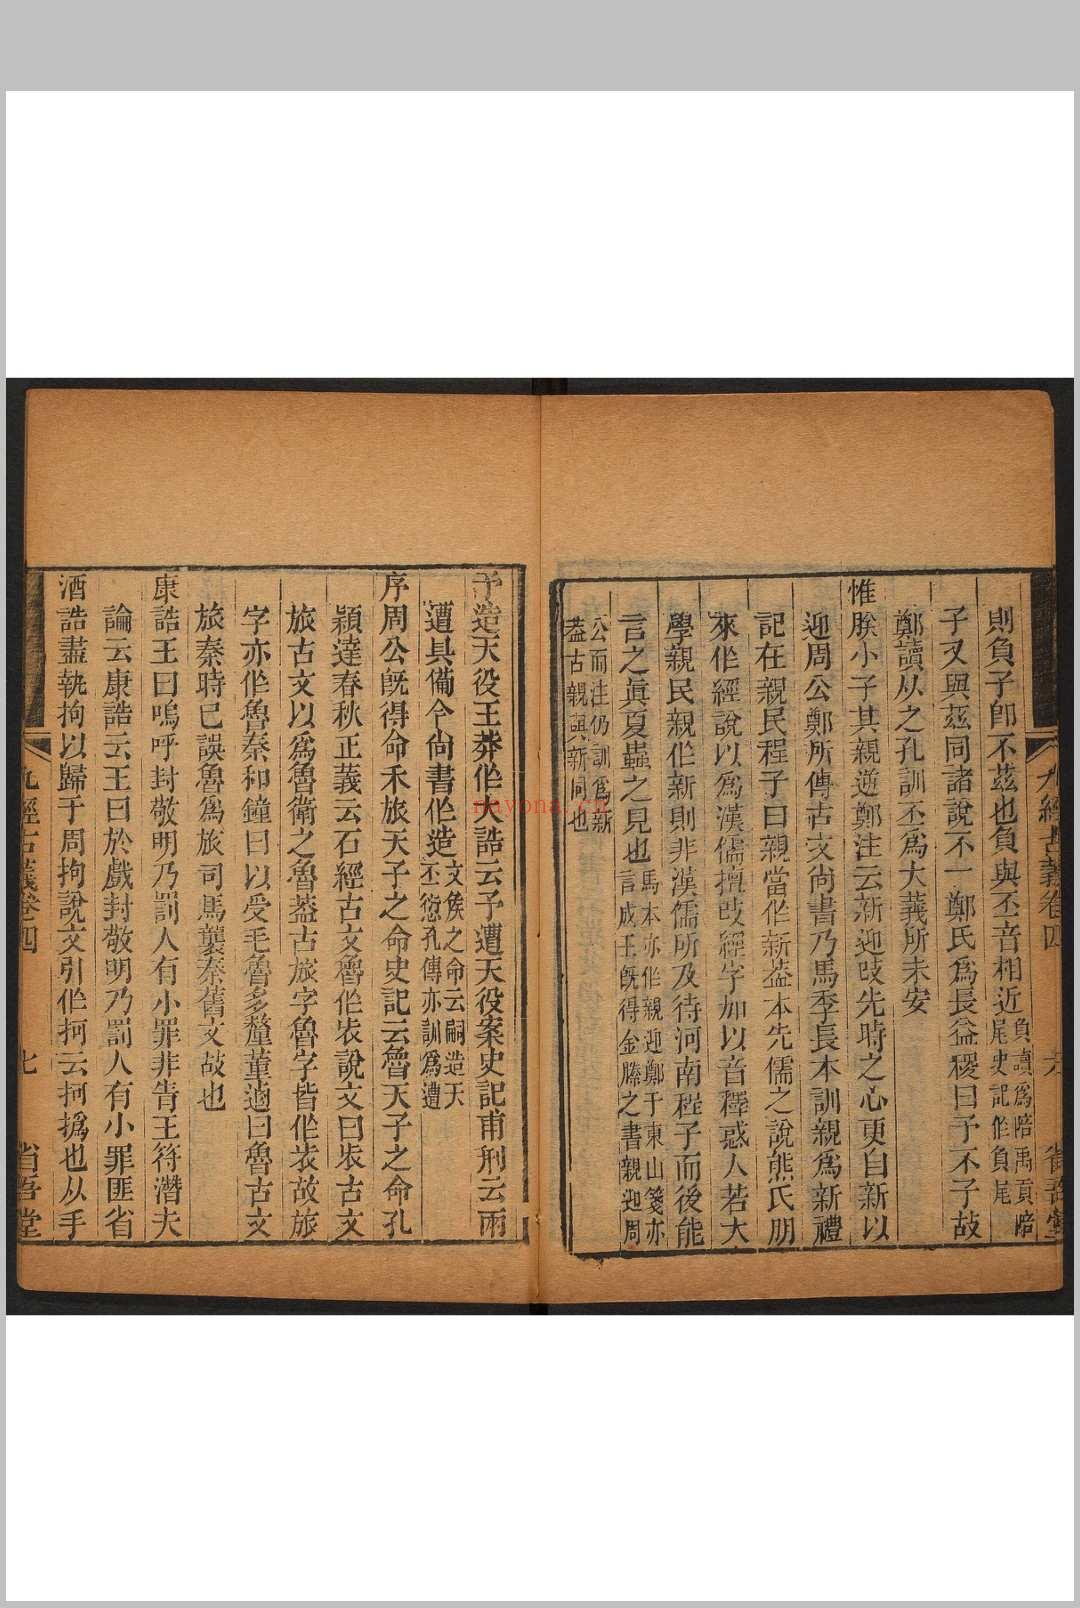 則負子卽不茲也負與丕音相近負讀爲陪禹貢陪
尾史記作負尾
子又與茲同諸說不一鄭氏爲長益稷曰予不子故
鄭讀从之孔訓丕爲大義所未安
惟朕小子其親逆鄭注云新迎改先時之心更自新以
迎周公鄭所傳古文尚書乃馬季長本訓親爲新禮
記在親民程子曰親當作新葢本先儒之說熊氏朋
來作經說以爲漢儒擅改經字加以音釋惑人若大
學親民親作新則非漢儒所及待河南程子而後能
言之眞夏蟲之見也馬本亦作親迎鄭于東山箋亦
言成王旣得金縢之書親迎周
公而注仍訓爲新
葢古親與新同也
九經古義卷四
六
省吾堂
予造天役王莽作大誥云予遭天役案史記甫刑云兩
遭具備今尚書作造文侯之命云嗣造天
丕愆孔傳亦訓爲遭
序周公旣得命禾旅天子之命史記云魯天子之命孔
穎達春秋正義云石經古文魯作㳒說文曰㳒古文
旅古文以爲魯衛之魯葢古旅字魯字皆作㳒故旅
字亦作魯秦和鐘曰以受毛魯多釐董逌曰魯古文
旅秦時已誤魯爲旅司馬襲秦舊文故也
康誥王曰嗚呼封敬明乃罰人有小罪非眚王符潛夫
論云康誥云王曰於戲封敬明乃罰人有小罪匪省
酒誥盡執拘以歸于周拘說文引作抲云抲撝也从手
九經古義卷四
七
省吾堂
nayona.cn